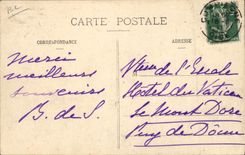 CARTE POSTALE
CORRESPONDANCE
ADRESSE
Merci
meilleurs
souvenirs
B. de S.
de l'Escale
Hotel du Vatican
Le Mont Dore
Puy de Dôme